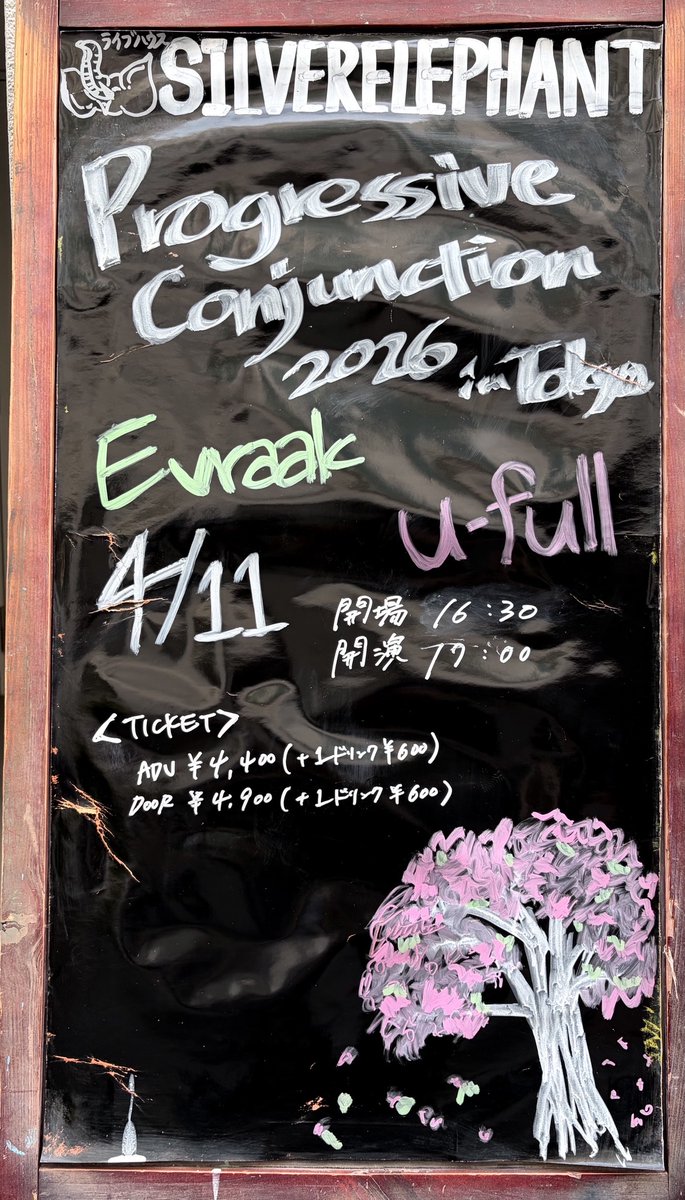 ライブハウス
SILVERELEPHANT
Progressive
Conjunction
2026 in Tokyo
Evraak
u-full
4/11
開場 16:30
開演 17:00
<TICKET>
ADV ¥4,400(+1ドリンク¥600)
DOOR ¥4,900(+1ドリンク¥600)